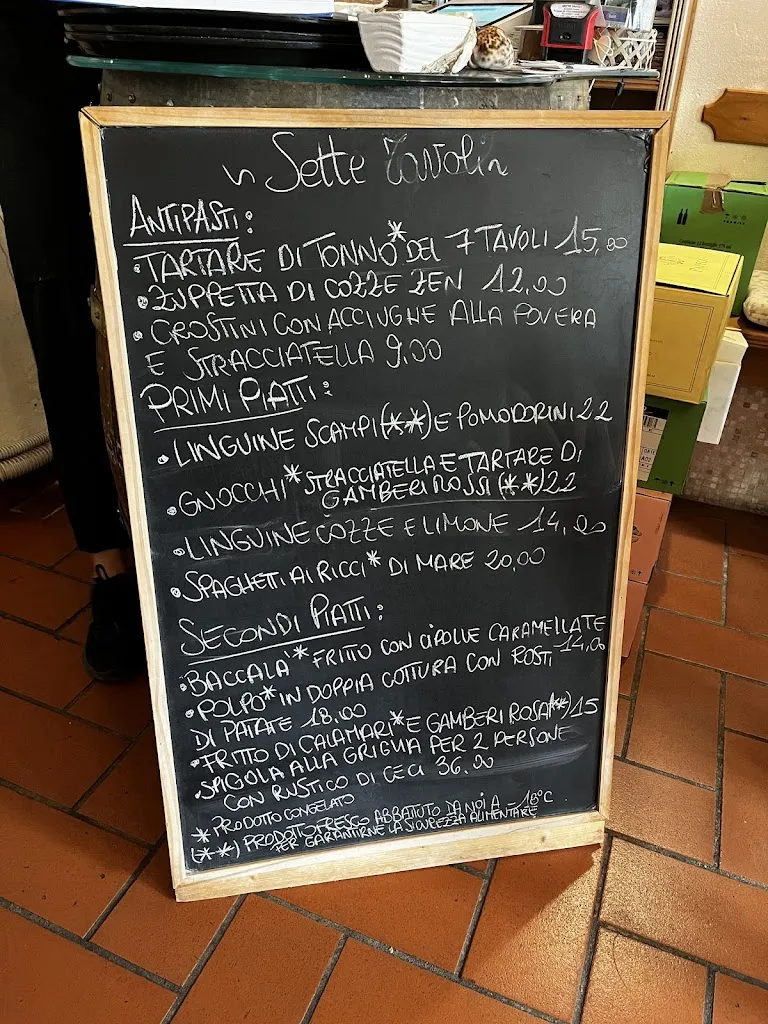 Sette Tavoli
ANTIPASTI:
• TARTARE DI TONNO* DEL 7 TAVOLI 15,00
• ZUPPETTA DI COZZE ZEN 12,00
• CROSTINI CON ACCIUGHE ALLA POVERA
E STRACCIATELLA 9,00
PRIMI PIATTI:
• LINGUINE SCAMPI (**) E POMODORINI 22
• GNOCCHI* STRACCIATELLA E TARTARE DI
GAMBERI ROSSI (**) 22
• LINGUINE COZZE E LIMONE 14,00
• SPAGHETTI AI RICCI* DI MARE 20,00
SECONDI PIATTI:
• BACCALA'* FRITTO CON CIPOLLE CARAMELLATE 14,00
• POLPO* IN DOPPIA COTTURA CON ROSTI
DI PATATE 18.00
• FRITTO DI CALAMARI* E GAMBERI ROSA(**) 15
• SPIGOLA ALLA GRIGLIA PER 2 PERSONE
CON RUSTICO DI CECI 36,00
* PRODOTTO CONGELATO
(**) PRODOTTO FRESCO ABBATTUTO DA NOI A -18°C
PER GARANTIRNE LA SICUREZZA ALIMENTARE